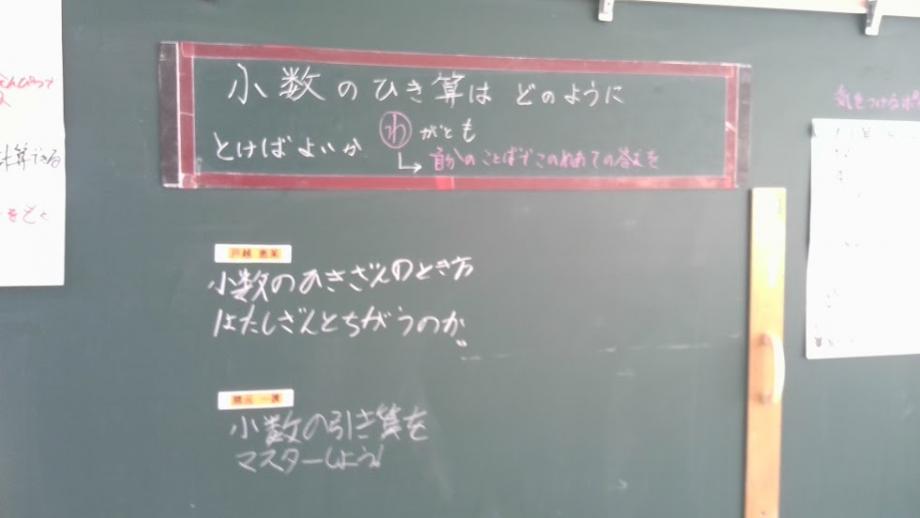 小数のひき算は どのように
とけばよいか わ がとも
↳ 自分のことばでこのねあての答えを
小数のひきざんのとき方
はたしざんとちがうのか
小数の引き算を
マスターしよう!
計算できる
気をつける